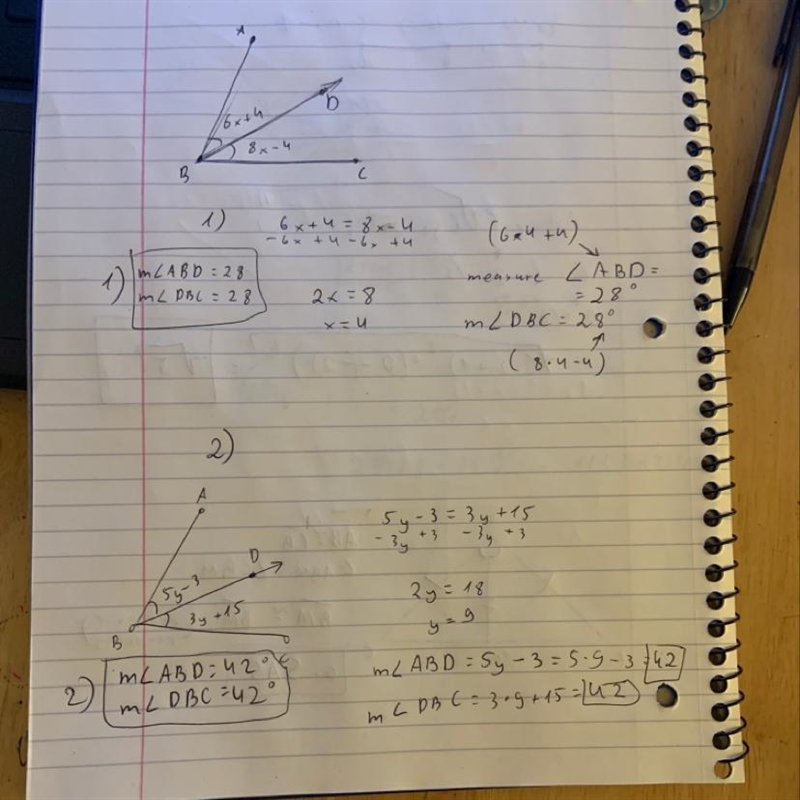 A
D
6x+4
8x-4
B
C
1)
6x+4 = 8x-4
-6x +4 -6x +4
(6·4+4)
1) m∠ABD = 28
m∠DBC = 28
2x = 8
x = 4
measure ∠ABD =
= 28°
m∠DBC = 28°
(8·4-4)
2)
A
D
5y-3
3y+15
B
C
5y-3 = 3y+15
-3y +3 -3y +3
2y = 18
y = 9
2) m∠ABD = 42°
m∠DBC = 42°
m∠ABD = 5y-3 = 5·9-3 = 42
m∠DBC = 3·9+15 = 42